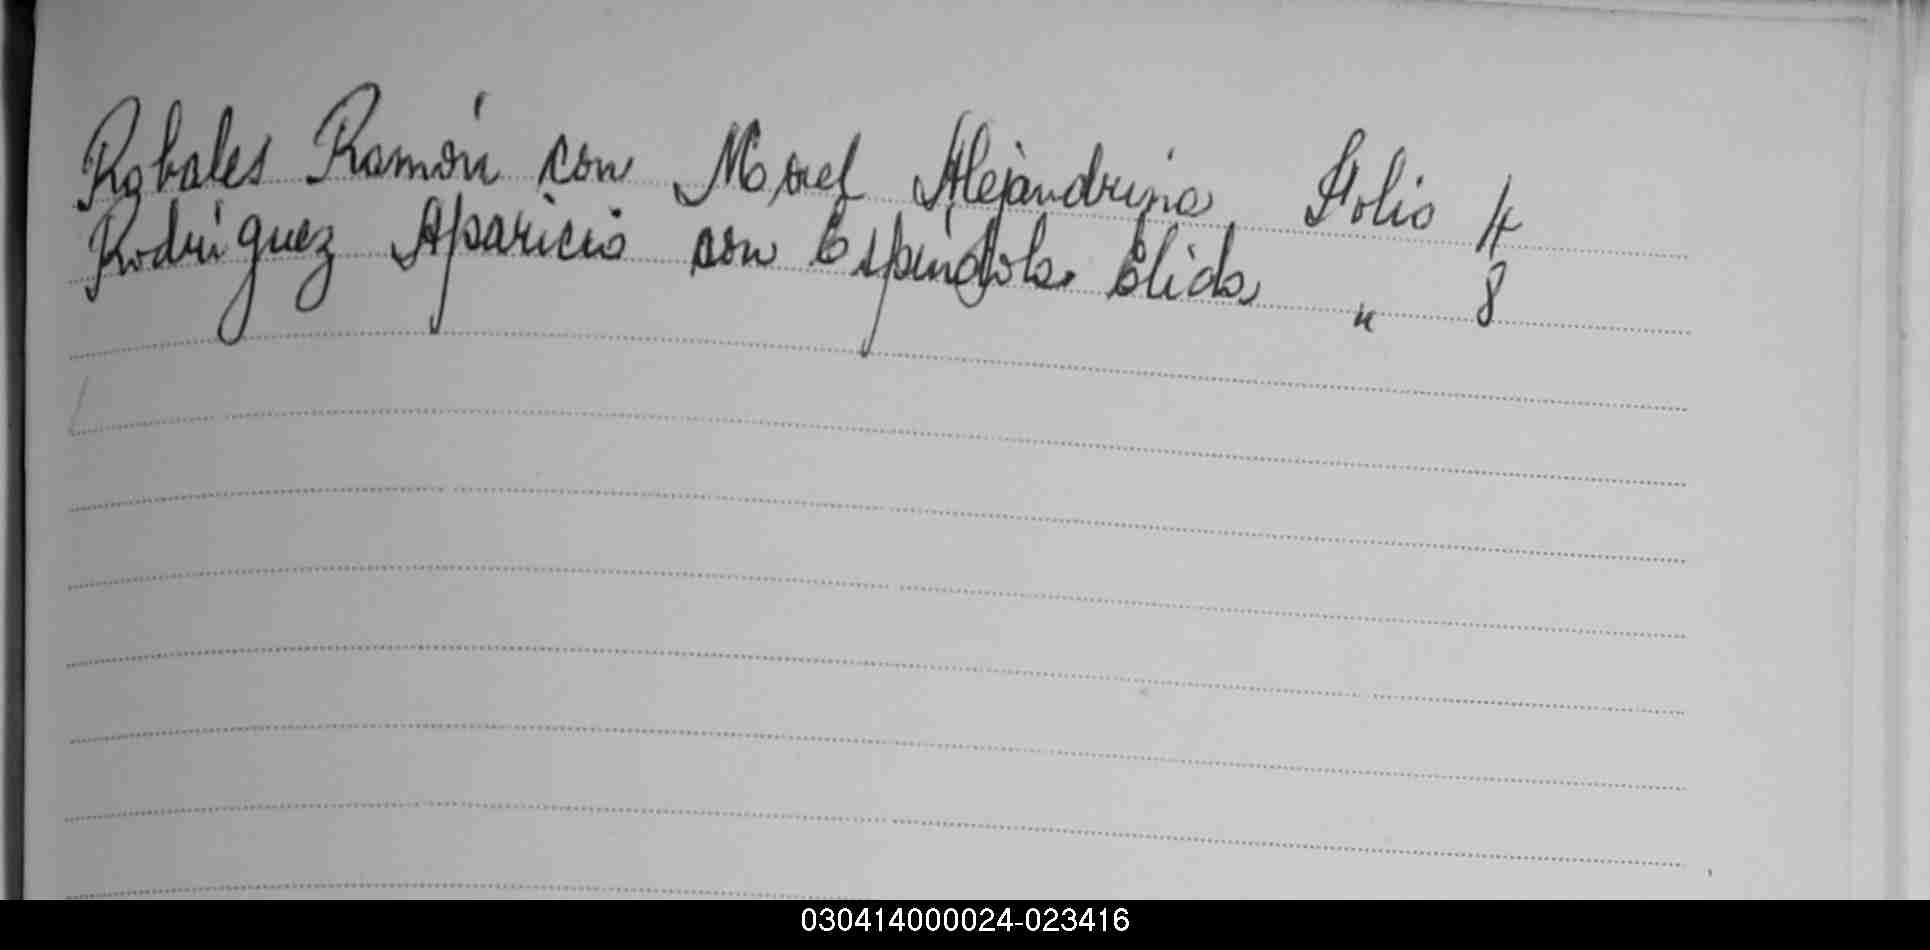 Robales Ramón con Morel Alejandrina Folio 4
Rodriguez Aparicio con Espindola Elida " 8
030414000024-023416